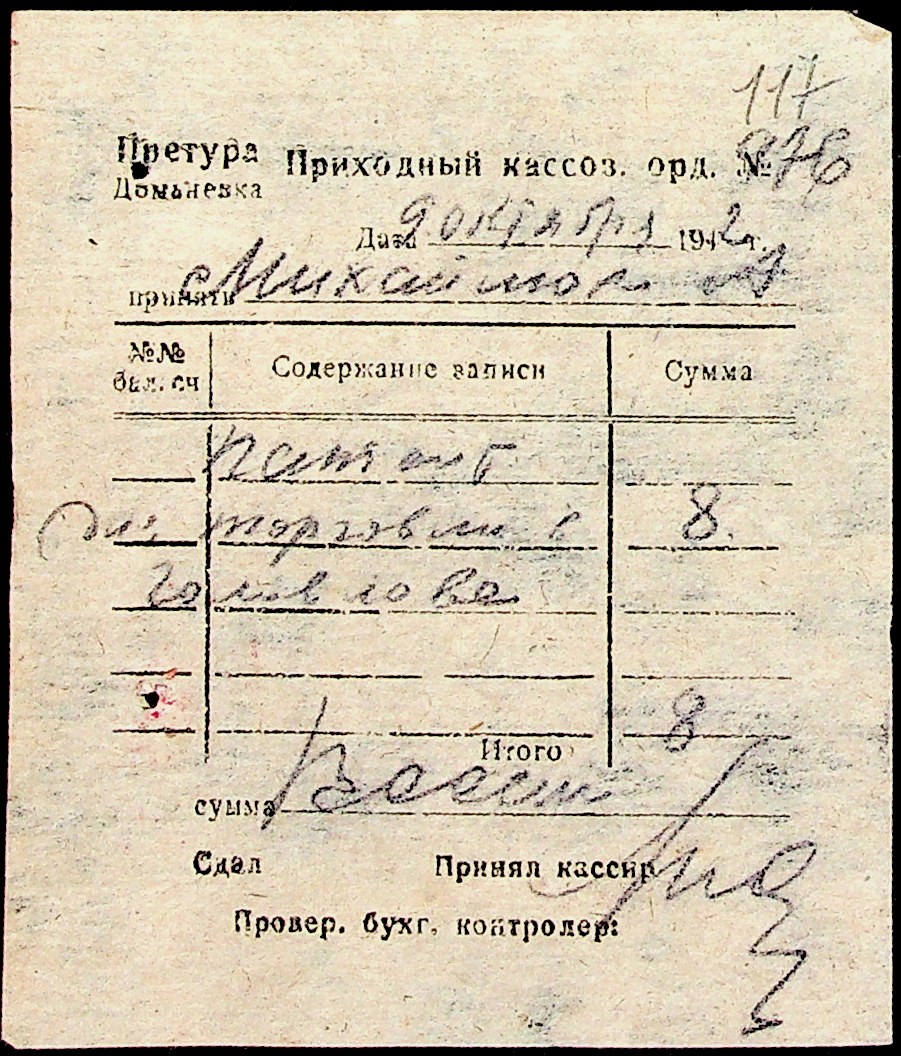 117
Претура Приходный кассов. орд. № 976
Доманевка
Дата 9 октября 1942 г.
принять Михай
№№ бал. сч Содержание записи Сумма
патент
для торговли в 8.
Итого 8
сумма Восемь
Сдал Принял кассир
Провер. бухг. контролер: